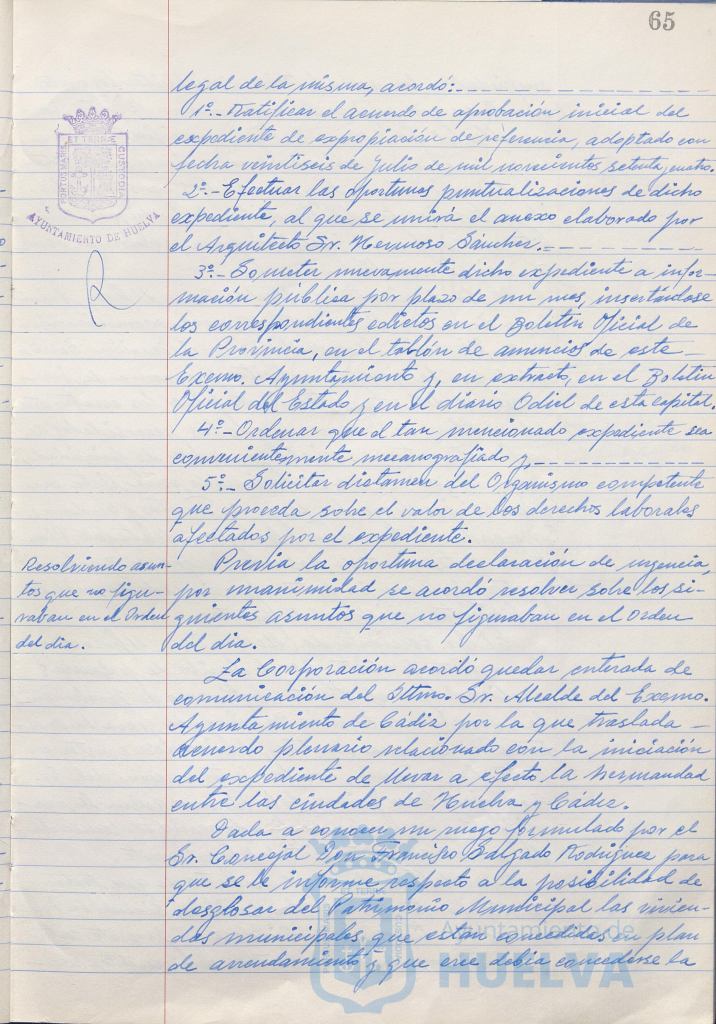 65
legal de la misma, acordó:
1º.- Ratificar el acuerdo de aprobación inicial del
expediente de expropiación de referencia, adoptado con
fecha veintiseis de Julio de mil novecientos setenta y cuatro.
2º.- Efectuar las oportunas puntualizaciones de dicho
expediente, al que se unirá el anexo elaborado por
el Arquitecto Sr. Hermoso Sánchez.
3º.- Someter nuevamente dicho expediente a infor-
mación pública por plazo de un mes, insertándose
los correspondientes edictos en el Boletín Oficial de
la Provincia, en el tablón de anuncios de este
Excmo. Ayuntamiento y, en extracto, en el Boletín
Oficial del Estado y en el diario Odiel de esta capital.
4º.- Ordenar que el tan mencionado expediente sea
convenientemente mecanografiado y,
5º.- Solicitar dictamen del Organismo competente
que proceda sobre el valor de los derechos laborales
afectados por el expediente.
Resolviendo asun-
tos que no figu-
raban en el Orden
del dia.
Previa la oportuna declaración de urgencia,
por unanimidad se acordó resolver sobre los si-
guientes asuntos que no figuraban en el Orden
del dia.
La Corporación acordó quedar enterada de
comunicación del Iltmo. Sr. Alcalde del Excmo.
Ayuntamiento de Cádiz por la que traslada
acuerdo plenario relacionado con la iniciación
del expediente de llevar a efecto la hermandad
entre las ciudades de Huelva y Cádiz.
Dada a conocer un ruego formulado por el
Sr. Concejal Don Francisco Salgado Rodríguez para
que se le informe respecto a la posibilidad de
desglosar del Patrimonio Municipal las vivien-
das municipales que estan concedidas en plan
de arrendamiento y que cree debia concederse la
PORTUS MARIS ET TERRAE CUSTODIA
AYUNTAMIENTO DE HUELVA
Ayuntamiento de
HUELVA